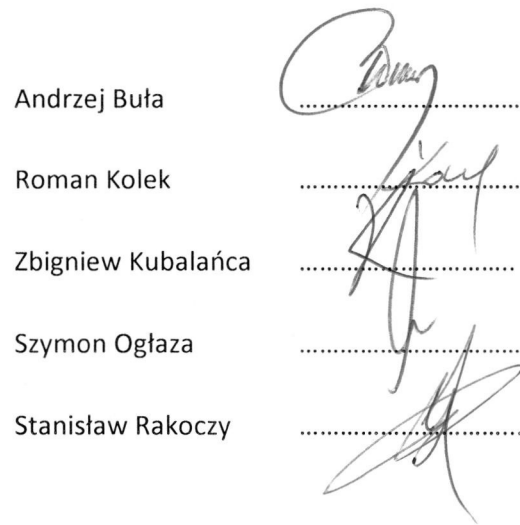 Andrzej Buła ........................................
Roman Kolek ........................................
Zbigniew Kubalańca ........................................
Szymon Ogłaza ........................................
Stanisław Rakoczy ........................................